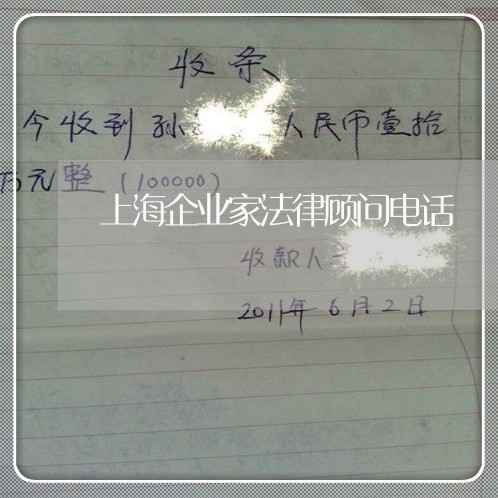 收条
今收到孙 人民币壹拾
万元整（100000）
上海企业家法律顾问电话
收款人
2011年6月2日